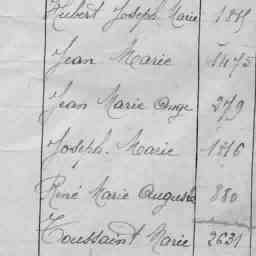 Hubert Joseph Marie
Jean Marie 1475
Jean Marie Ange 279
Joseph-Marie 1816
René Marie Auguste 880
Toussaint Marie 2631